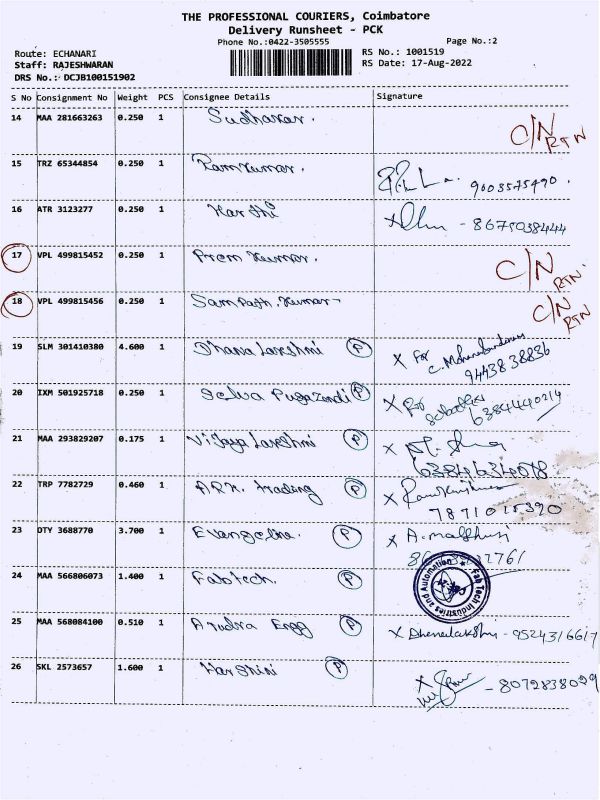 THE PROFESSIONAL COURIERS, Coimbatore
Delivery Runsheet - PCK
Phone No.:0422-3505555 Page No.:2
Route: ECHANARI RS No.: 1001519
Staff: RAJESHWARAN RS Date: 17-Aug-2022
DRS No.: DCJB100151902
S No Consignment No Weight PCS Consignee Details Signature
14 MAA 281663263 0.250 1 Sudhakar. C/N RTN
15 TRZ 65344854 0.250 1 Ramkumar. 9003575490.
16 ATR 3123277 0.250 1 Karthi X - 8675038444
17 VPL 499815452 0.250 1 Prem Kumar. C/N RTN
18 VPL 499815456 0.250 1 Sampath Kumar- C/N RTN
19 SLM 301410380 4.600 1 Dhana Lakshmi P X For
9443838836
20 IXM 501925718 0.250 1 Selva Pugazendi P X For
6384440214
21 MAA 293829207 0.175 1 Vijaya Lakshmi P X
6384634078
22 TRP 7782729 0.460 1 ARK. Trading P X Ramkrishna
7871015390
23 DTY 3688770 3.700 1 Evangeline. P X A. madhusi
24 MAA 566806073 1.400 1 Fabtech. P Fab Tech Industries and Automation
25 MAA 568084100 0.510 1 Arudra Engg P X Dhanalakshmi - 9524316617
26 SKL 2573657 1.600 1 Harshini P X - 8072838029